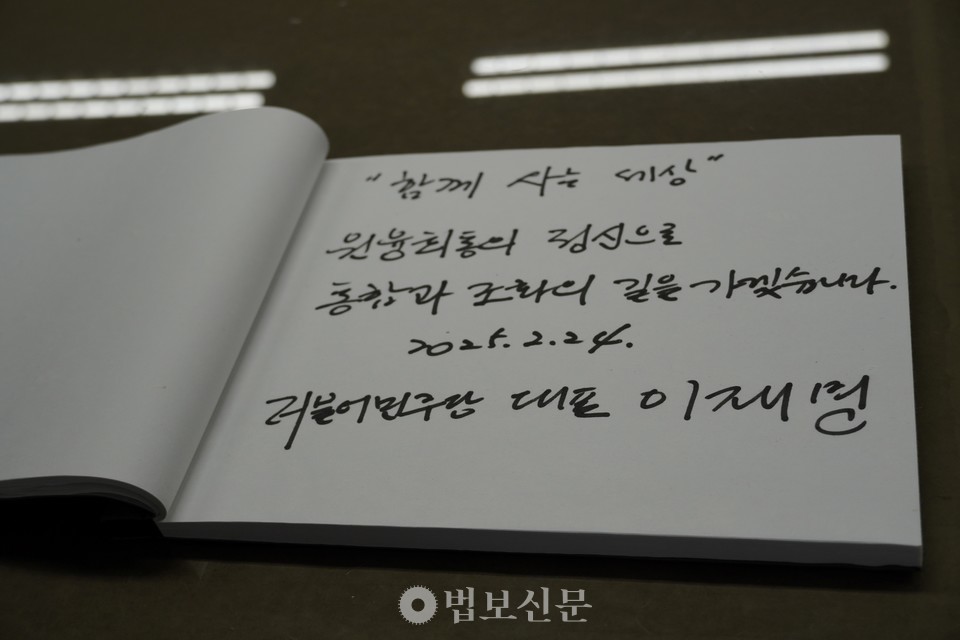 "함께 사는 세상"
원융회통의 정신으로
통합과 조화의 길을 가겠습니다.
2025.2.24.
더불어민주당 대표 이재명
법보신문